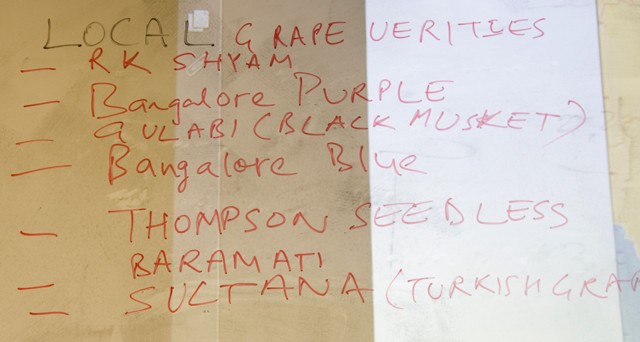 LOCAL GRAPE VERITIES
— RK SHYAM
— Bangalore PURPLE
— GULABI (BLACK MUSKET)
— Bangalore Blue
— THOMPSON SEEDLESS
BARAMATI
— SULTANA (TURKISH GRAP